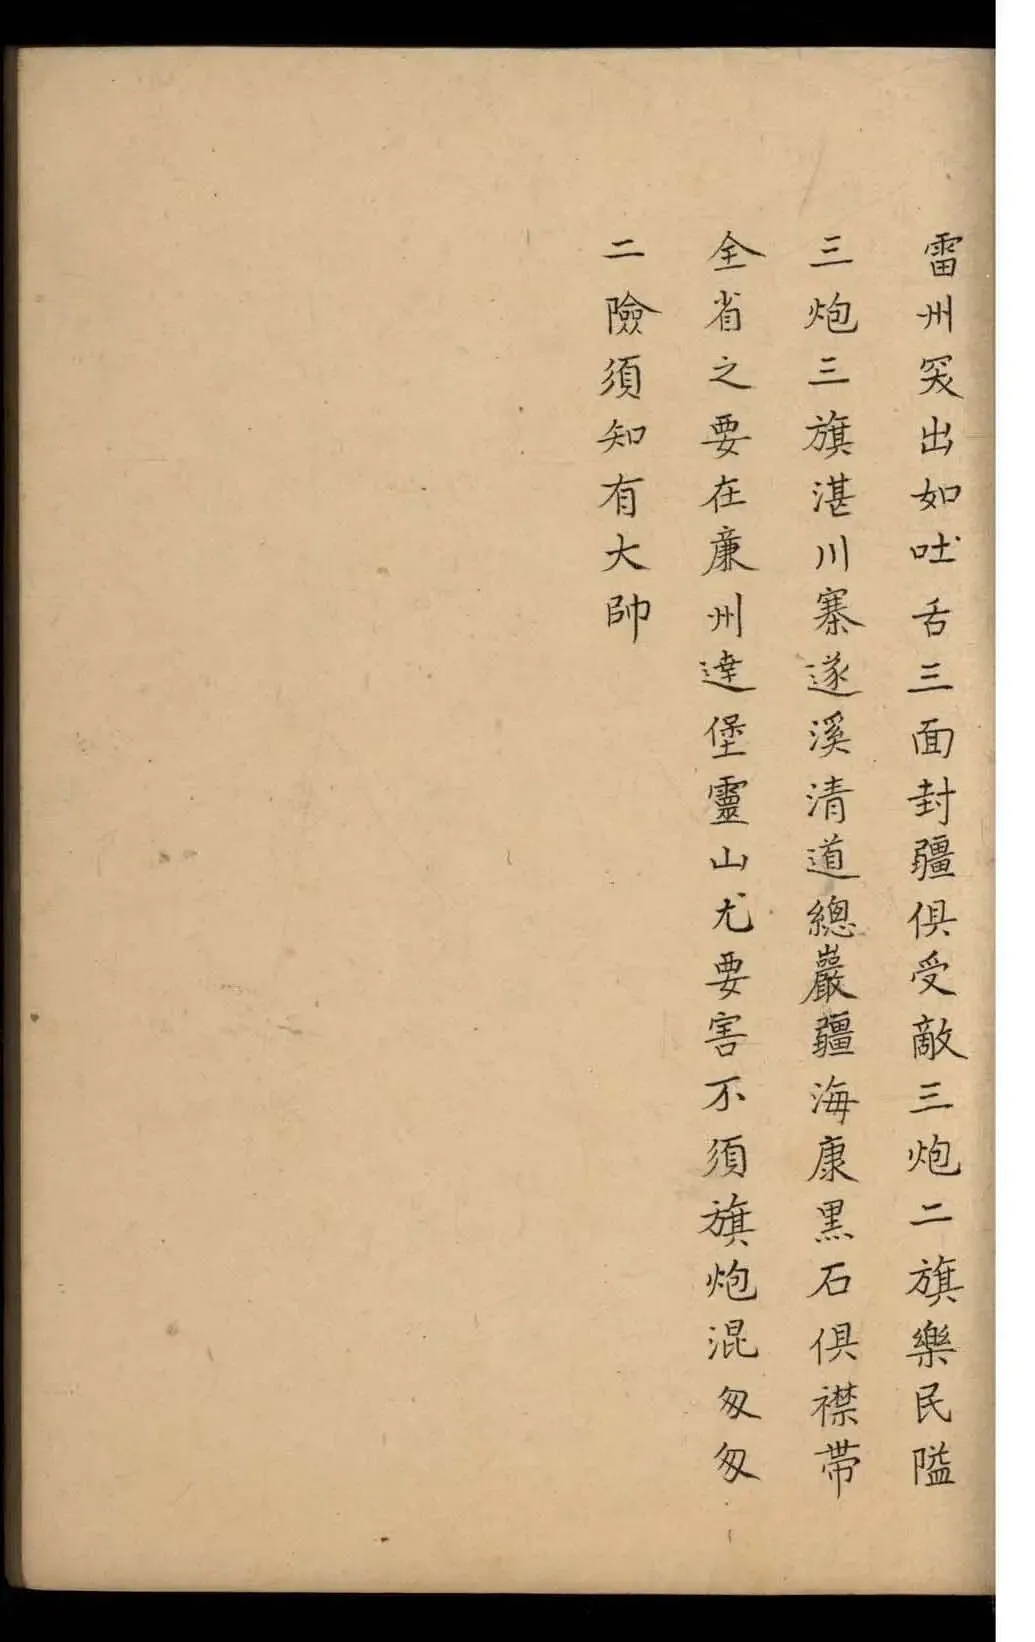 雷州突出如吐舌三面封疆俱受敵三炮二旗樂民隘
三炮三旗湛川寨遂溪清道總嚴疆海康黑石俱襟帶
全省之要在廉州達堡靈山尤要害不須旗炮混匆匆
二險須知有大帥